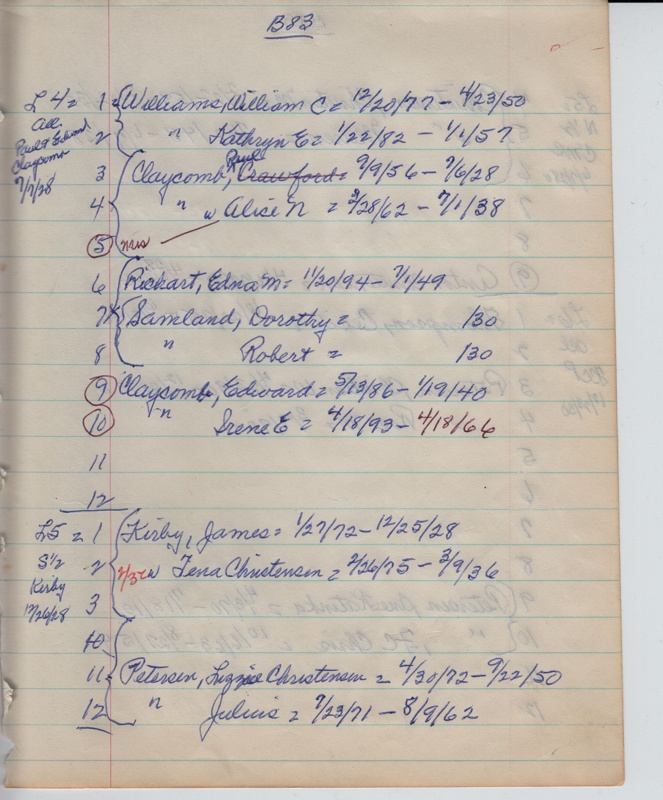 B83
L4 = 1 Williams, William C = 12/20/77 - 4/23/50
All.
2 " Kathryn E = 1/22/82 - 1/1/57
Paul & Edward
Claycomb
7/7/28
3 Claycomb, Crawford = Paul 9/9/56 - 7/6/28
4 " w Alice N = 2/28/62 - 7/1/38
5
6 Richart, Edna M = 11/20/94 - 7/1/49
7 Samland, Dorothy = /30
8 " Robert = /30
9 Claycomb, Edward = 5/13/86 - 1/19/40
10 " Irene E = 4/18/93 - 4/18/66
11
12
L5 = 1 Kirby, James = 1/27/72 - 12/25/28
S 1/2
2 w Tena Christensen = 2/26/75 - 3/9/36
Kirby
12/26/28
3
10
11 Petersen, Lizzie Christensen = 4/30/72 - 9/22/50
12 " Julius = 7/23/71 - 8/9/62